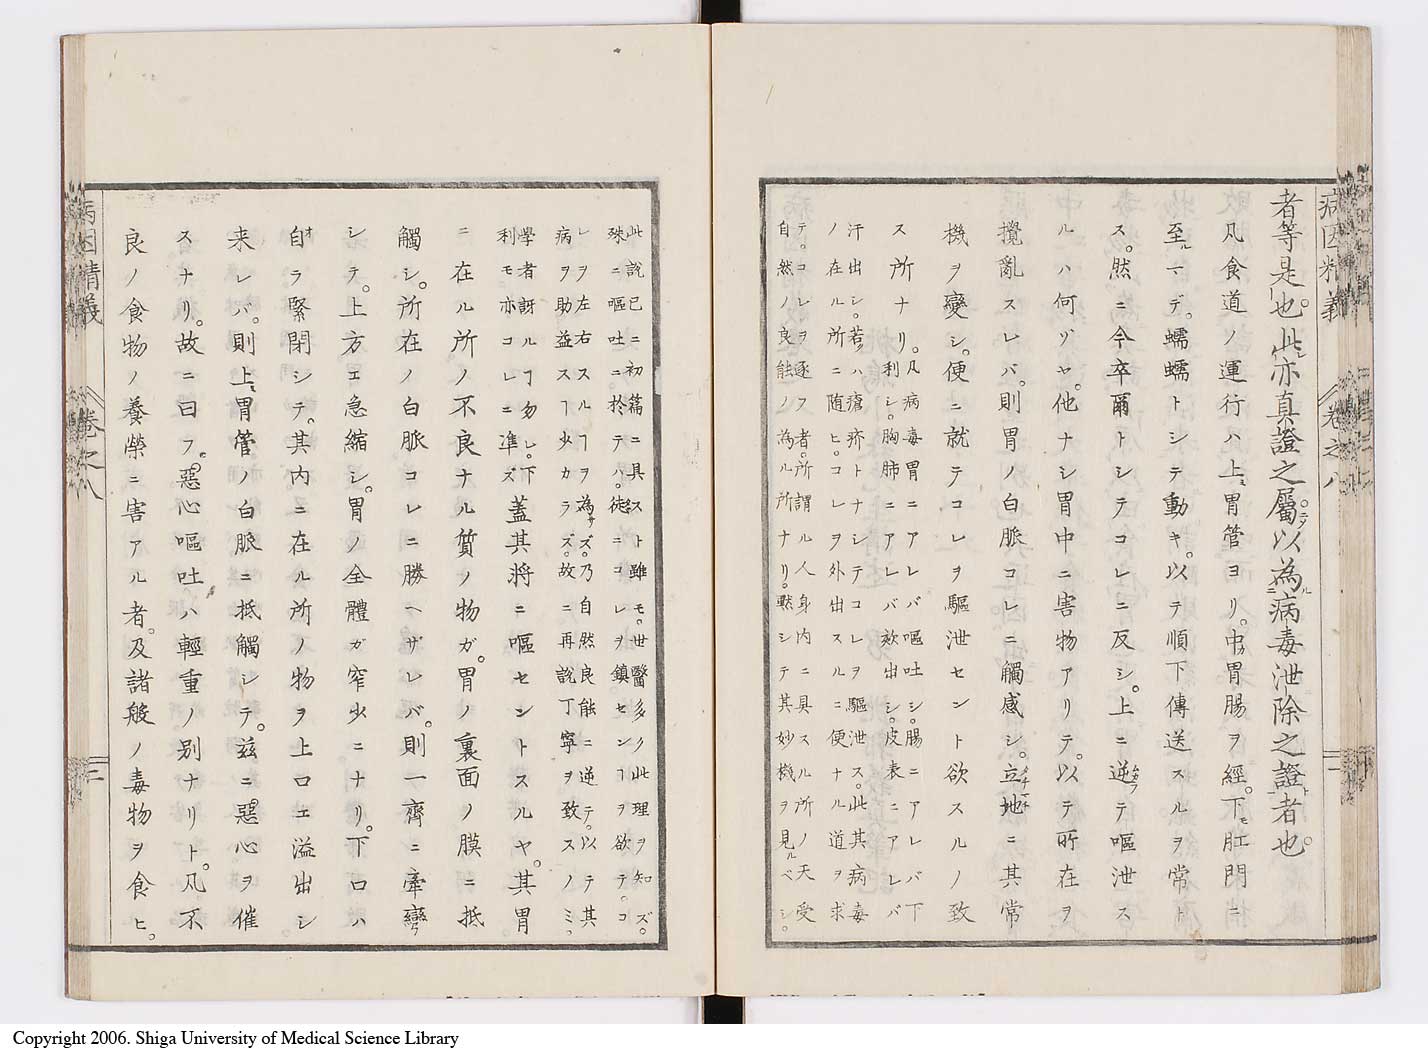 病因精義 巻之八
者等是也。此亦真證之屬。以為病毒泄除之證者也。
凡食道ノ運行ハ上ミ胃管ヨリ。中カ胃腸ヲ經。下モ肛門ニ
至ルマデ。蠕蠕トシテ動キ。以テ順下傳送スルヲ常ト
ス。然ニ今卒爾トシテコレニ反シ。上ニ逆テ嘔泄ス
ルハ何ゾヤ。他ナシ胃中ニ害物アリテ。以テ所在ヲ
攪亂スレバ。則胃ノ白脈コレニ觸感シ。立地ニ其常
機ヲ變シ。便ニ就テコレヲ驅泄セント欲スルノ致
ス所ナリ。凡病毒胃ニアレバ嘔吐シ。腸ニアレバ下
利シ。胸肺ニアレバ欬出シ。皮表ニアレバ
汗出シ。若クハ瘡疥トナシテコレヲ驅泄ス。此其病毒
ノ在ル所ニ随ヒ。コレヲ外出スルニ便ナル道ヲ求
テ。コレヲ逐フ者。所謂ル人身内ニ具スル所ノ天受
自然ノ良能ノ為ル所ナリ。黙シテ其妙機ヲ見ルベシ。
此説已ニ初篇ニ具スト雖モ。世醫多ク此理ヲ知ズ。
殊ニ嘔吐ニ於テハ。徒ニコレヲ鎮センヿヲ欲テ。コ
レヲ左右スルヿヲ為ズ。乃自然良能ニ逆テ。以テ其
病ヲ助益スヿ少カラズ。故ニ再説丁寧ヲ致スノミ。
學者訝ルヿ勿レ。下
利モ亦コレニ準ズ 蓋其将ニ嘔セントスルヤ。其胃
ニ在ル所ノ不良ナル質ノ物ガ。胃ノ裏面ノ膜ニ抵
觸シ。所在ノ白脈コレニ勝ヘザレバ。則一齊ニ牽攣
シテ。上方エ急縮シ。胃ノ全體ガ窄少ニナリ。下口ハ
自ラ緊閉シテ。其内ニ在ル所ノ物ヲ上口エ溢出シ
来レバ。則上ミ胃管ノ白脈ニ抵觸シテ。兹ニ惡心ヲ催
スナリ。故ニ曰フ。惡心嘔吐ハ輕重ノ別ナリト。凡不
良ノ食物ノ養榮ニ害アル者。及諸般ノ毒物ヲ食ヒ。
病因精義 巻之八 二
Copyright 2006. Shiga University of Medical Science Library